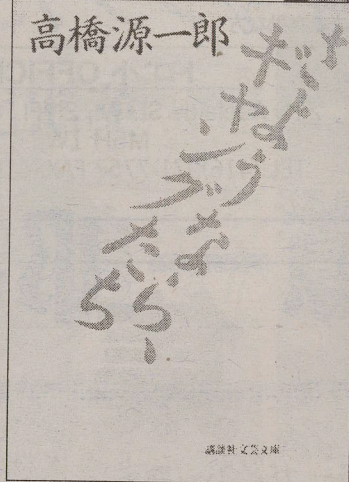 高橋源一郎
さようなら、
ギャングたち
講談社文芸文庫